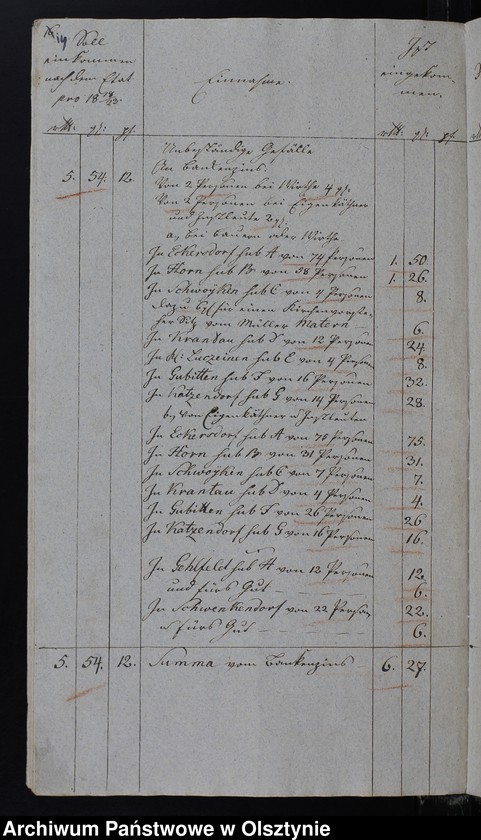 14
Soll
einkommen
nach dem Etat
pro 18 18/23.
Einnahme.
Ist
eingekom-
men.
rtlr. gr: pf.
rtlr. gr: pf.
Unbeständige Gefälle
An Bankenzins.
5. 54. 12. Von 2 Personen bei Wirthe 4 gr.
Von 2 Personen bei Eigenkäthner
und Instleute 2 gr.
a, bei Bauern oder Wirthe
In Eckersdorf sub A von 74 Personen 1. 50
In Horn sub B von 58 Personen 1. 26.
In Schwoyken sub C von 4 Personen 8.
dazu 6 gr für einen Kirchenvorste-
her Sitz vom Müller Matern — 6.
In Krantau sub D von 12 Personen 24
In Kl: Luczeinen sub E von 4 Person 8.
In Gubitten sub F von 16 Personen 32.
In Katzendorf sub G von 14 Personen 28.
b, von Eigenkäthner u Instleuten
In Eckersdorf sub A von 75 Personen 75.
In Horn sub B von 31 Personen 31.
In Schwoyken sub C von 7 Personen 7.
In Krantau sub D von 4 Personen 4.
In Gubitten sub F von 26 Personen 26
In Katzendorf sub G von 16 Personen 16.
In Gehlfeld sub H von 12 Personen 12
und fürs Gut — 6.
In Schwenkendorf von 22 Person 22.
u fürs Gut — 6.
5. 54. 12. Summa vom Bankenzins 6. 27.
Archiwum Państwowe w Olsztynie